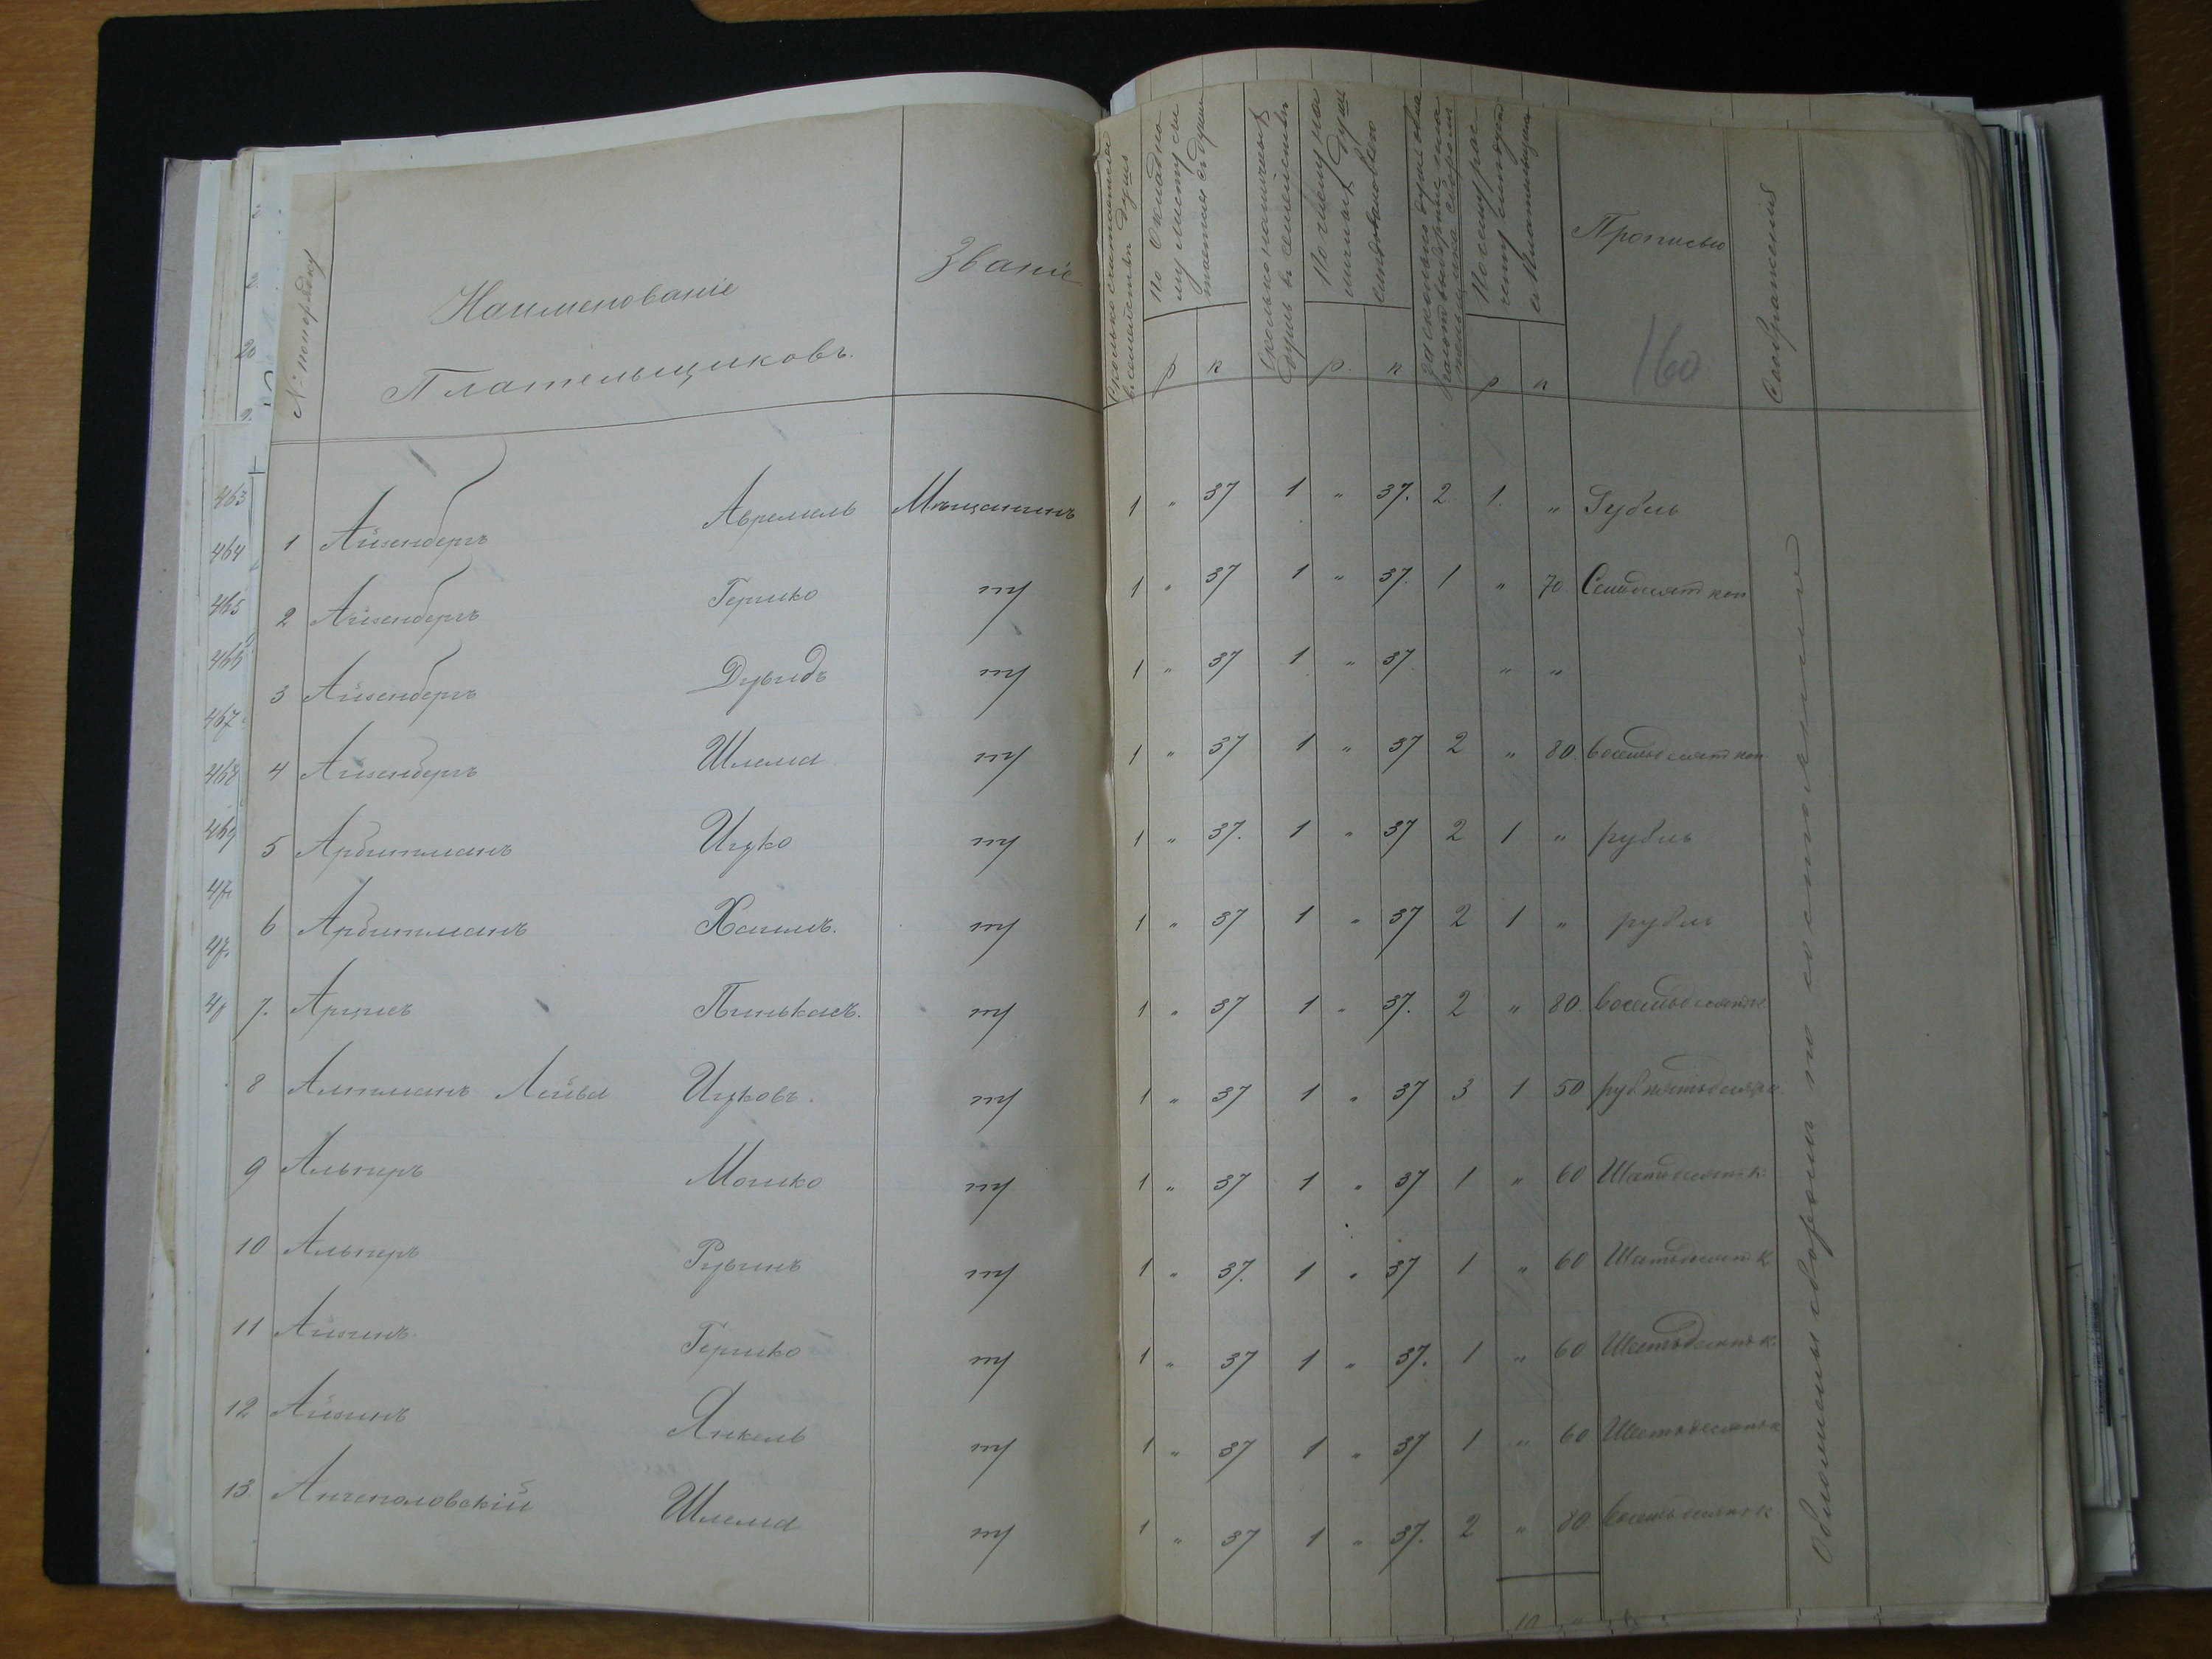 № по порядку
Наименованіе
Плательщиковъ.
Званіе
Сколько считается въ семействѣ душъ
По окладно
му листу си
тается съ души
р к
Сколько наличныхъ душъ въ семействѣ
По числу на
личныхъ душъ
слѣдовало бы
р. к
За сколько душъ
р к
Прописью
160
Соображенія
1 Айзенбергъ Авремель Мѣщанинъ 1 „ 37 1 „ 37. 2 1 „ Рубль
2 Айзенбергъ Гершко т/ 1 „ 37 1 „ 37. 1 „ 70. Семьдесят коп
3 Айзенбергъ Дувидъ т/ 1 „ 37 1 „ 37. „ „
4 Айзенбергъ Шлема т/ 1 „ 37 1 „ 37 2 „ 80. восемьдесят коп
5 Арбитманъ Ицко т/ 1 „ 37. 1 „ 37 2 1 „ рубль
6 Арбитманъ Хаимъ. т/ 1 „ 37 1 „ 37 2 1 „ рубль
7. Арцисъ Пинькасъ. т/ 1 „ 37 1 „ 37. 2 „ 80. восемьдесят к.
8 Алтманъ Лейба Ицковъ. т/ 1 „ 37 1 „ 37 3 1 50 руб пятьдесят к
9 Альперъ Мошко т/ 1 „ 37 1 „ 37 1 „ 60 Шестьдесят к.
10 Альперъ Рувинъ т/ 1 „ 37. 1 „ 37 1 „ 60 Шестьдесят к
11 Айзинъ Гершко т/ 1 „ 37 1 „ 37. 1 „ 60 Шестьдесят к.
12 Айзинъ Янкель т/ 1 „ 37 1 „ 37 1 „ 60 Шестьдесят к
13. Анчеполовскій Шлема т/ 1 „ 37 1 „ 37. 2 „ 80 восемьдесят к
Обложены сборомъ по состоянію
463
464
465
466
467
468
469